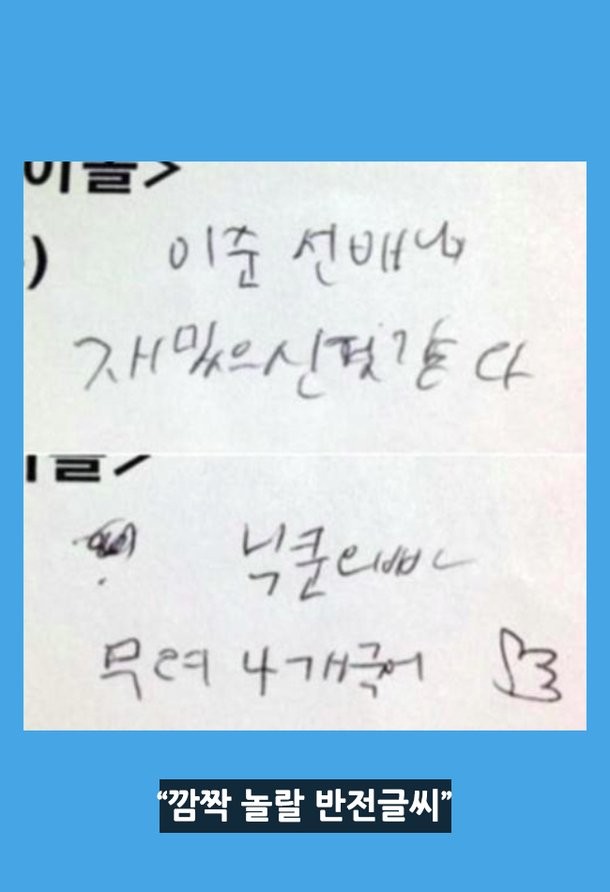 이돌>
)
이준 선배님
재밌으신것같다
이돌>
닉쿤오빠
무려 4개국어
“깜짝 놀랄 반전글씨”